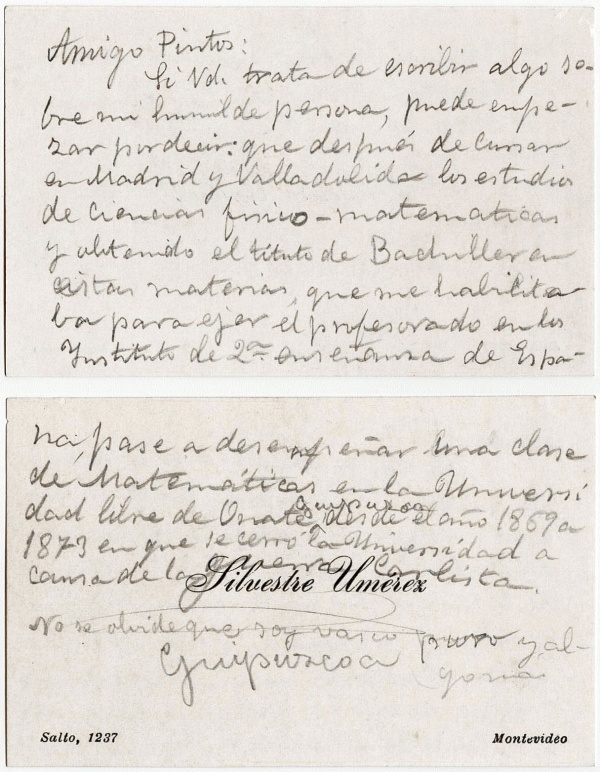 Amigo Pintos:
Si Vd. trata de escribir algo so-
bre mi humilde persona, puede empe-
zar por decir: que después de cursar
en Madrid y Valladolid los estudios
de ciencias físico-matematicas
y obtenido el título de Bachiller en
estas materias, que me habilita-
ba para ejer el profesorado en los
Instituto de 2ª enseñanza de Espa-
ña, pase a desempeñar una clase
de Matemáticas en la Universi
Guipuzcoa
dad libre de Oñate, desde el año 1869 a
1873 en que se cerró la Universidad a
causa de la guerra Carlista.
Silvestre Umérez
No se olvide que soy vasco puro y al-
Guipuscoa
Salto, 1237
Montevideo